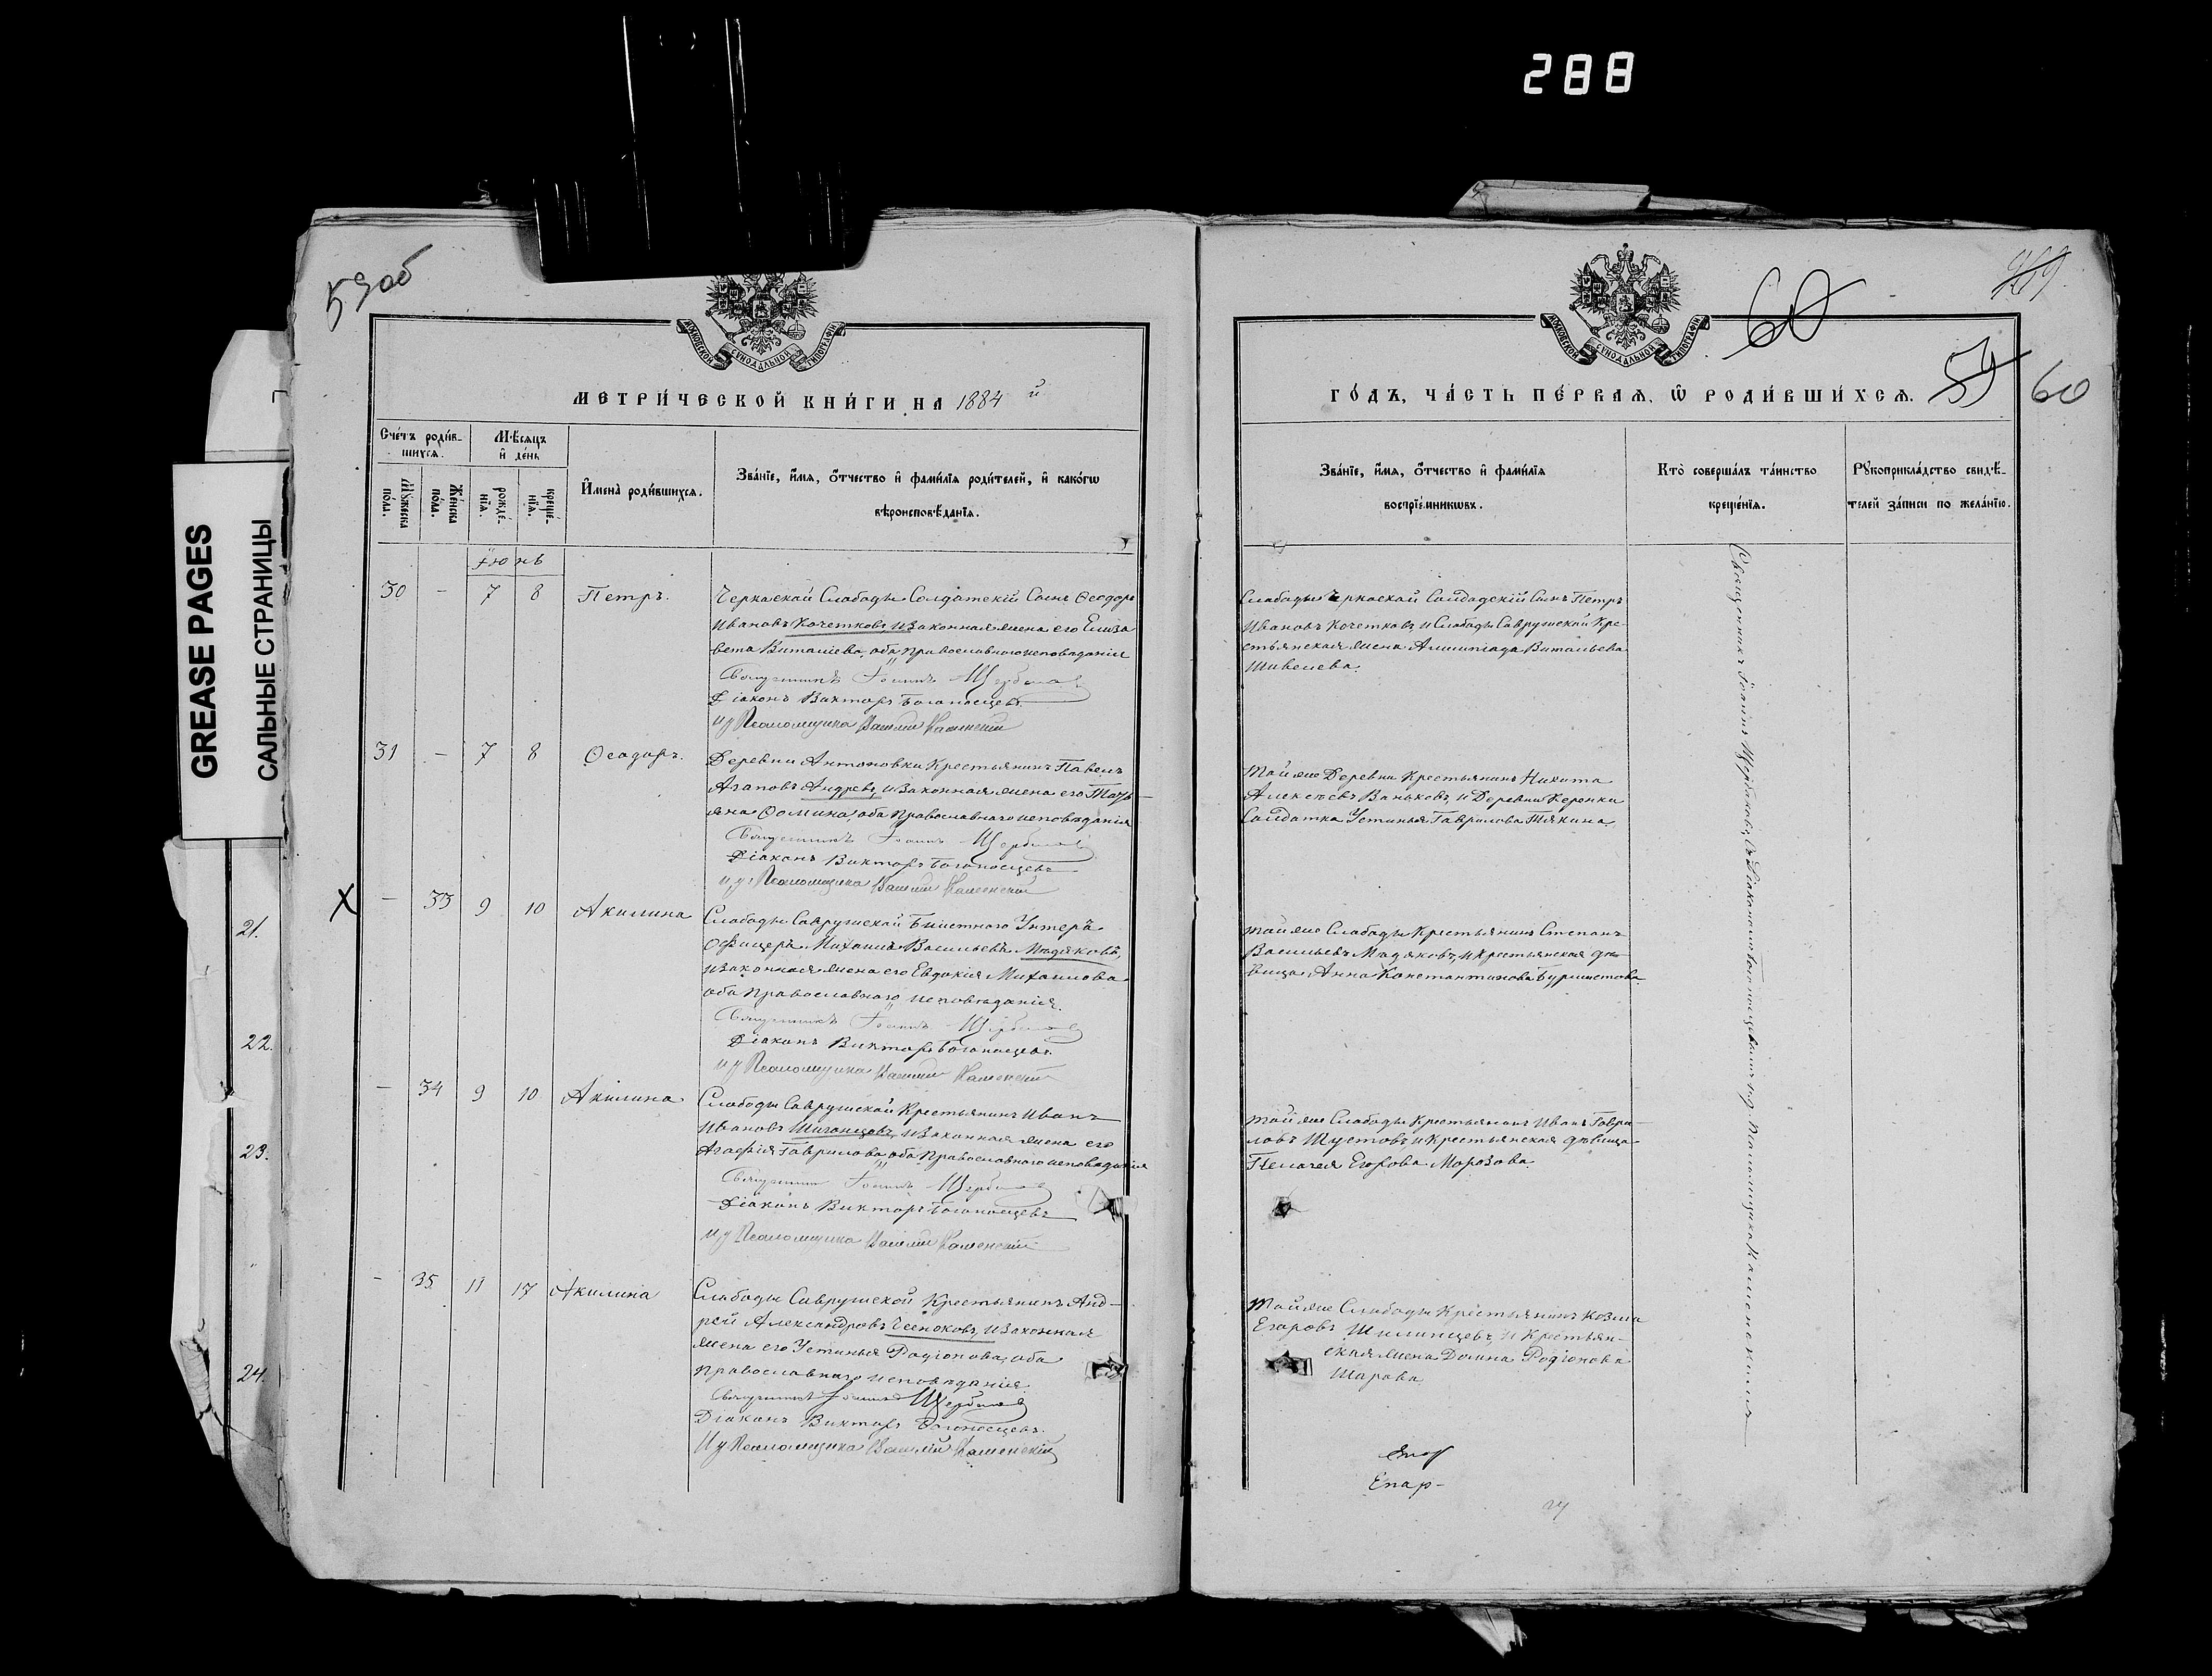 288
GREASE PAGES
САЛЬНЫЕ СТРАНИЦЫ
21.
22.
23.
24.
59об
МОСКОВСКОЙ СѴНОДАЛЬНОЙ ТИПОГРАФІИ
МЕТРИ́ЧЕСКОЙ КНИ́ГИ НА 1884 й
Сче́тъ роди́в-
шихся.
Мѣ́сяцъ
и҆ де́нь
Му́жеска
по́ла.
Же́нска
по́ла.
рожде́-
нїя.
креще́-
нїя.
И҆мена̀ роди́вшихся.
Зва́нїе, и҆́мя, ѻ҆́тчество и҆ фами́лїя роди́телей, и҆ како́гѡ
вѣроисповѣ́данїя.
Іюнь
30 - 7 8 Петръ.
Черкаской Слободы Солдатскій Сынъ Ѳеодоръ
Ивановъ Кочетковъ, и законная жена его Елиза
вета Виталіева, оба православнаго исповѣданія
Священникъ Іоаннъ Щербаковъ
Діаконъ Викторъ Богоносцевъ
и д Псаломщика Василій Каменскій
31 - 7 8 Ѳеодоръ.
Деревни Антоновки Крестьянинъ Павелъ
Агаповъ Андревъ, и законная жена его Тать
яна Ѳомина, оба Православнаго исповѣданія
Священникъ Іоаннъ Щербаковъ
Діаконъ Викторъ Богоносцевъ
и, д, Псаломщика Василій Каменскій
X - 33 9 10 Акилина
Слободы Саврушской Билетнаго Унтеръ
Офицеръ Михаилъ Васильевъ Мадяковъ,
и законная жена его Евдокія Михаилова
оба православнаго исповѣданія.
Священникъ Іоаннъ Щербаковъ
Діаконъ Викторъ Богоносцевъ.
и д Псаломщика Василій Каменскій
- 34 9 10 Акилина
Слободы Саврушской Крестьянинъ Иванъ
Ивановъ Шиганцовъ, и законная жена его
Агафія Гаврилова, оба Православнаго исповѣданія
Священникъ Іоаннъ Щербаковъ
Діаконъ Викторъ Богоносцевъ
и, д Псаломщика Василій Каменскій
- 35 11 17 Акилина
Слободы Саврушской Крестьянинъ Анд-
рей Александровъ Чесноковъ, и законная
жена его Устинья Родіонова, оба
православнаго исповѣданія.
Священникъ Іоаннъ Щербаковъ
Діаконъ Викторъ Богоносцевъ.
И д Псаломщика Василій Каменскій
60
59 60
МОСКОВСКОЙ СѴНОДАЛЬНОЙ ТИПОГРАФІИ
ГО́ДЪ, ЧА́СТЬ ПЕ́РВАЯ, Ѡ РОДИ́ВШИХСЯ.
Зва́нїе, и҆́мя, ѻ҆́тчество и҆ фами́лїя
воспрїе́мникѡвъ.
Кто̀ соверша́лъ та́инство
креще́нїя.
Рꙋкоприкла́дство свидѣ́-
телей за́писи по жела́нїю.
Слободы Черкаской Солдадскій Сынъ Петръ
Ивановъ Кочетковъ, и Слободы Саврушской Кре-
стьянская жена Алимпіада Витальева
Шивелева.
Той же Деревни Крестьянинъ Никита
Алексѣевъ Ваньковъ, и Деревни Керенки
Солдатка Устинья Гаврилова Тяжина.
Той же Слободы Крестьянинъ Степанъ
Васильевъ Мадяковъ, и крестьянская дѣ-
вица Анна Константинова Бурмистова
Той же Слободы Крестьянинъ Иванъ Гаври-
ловъ Шустовъ и крестьянская дѣвица
Пелагея Егорова Морозова.
Той же Слободы Крестьянинъ Козма
Егоровъ Шилинцевъ, и Крестьян-
ская жена Домна Родіонова
Шарова
Священникъ Іоаннъ Щербаковъ, съ Діакономъ Богоносцевымъ и и, д, Псаломщика Каменскимъ
Епар-